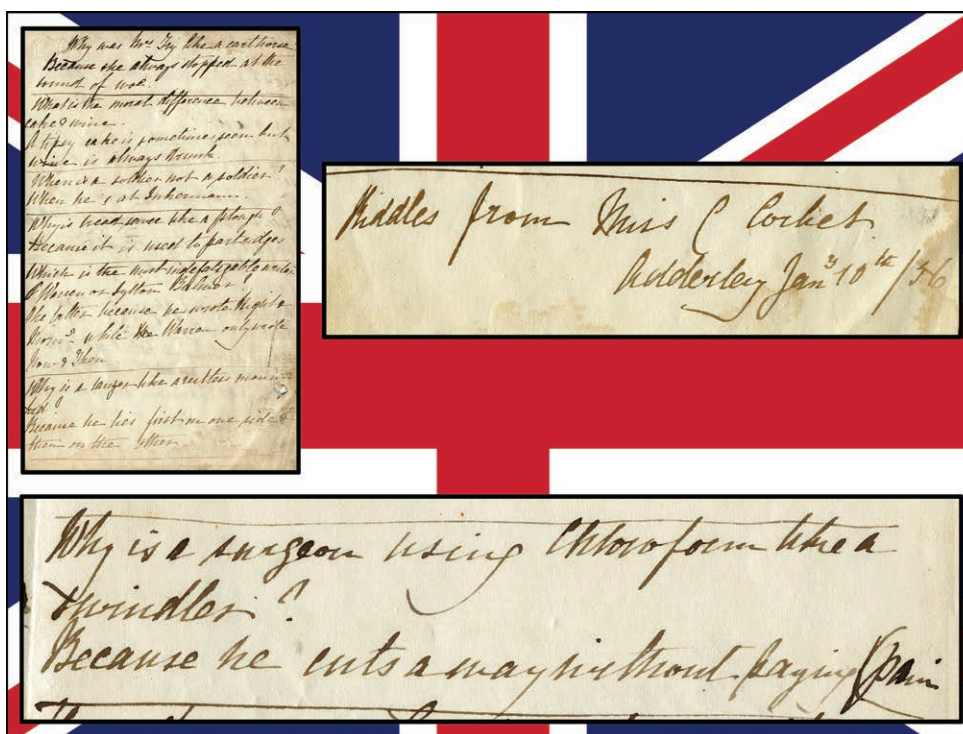 Why was Mrs Fry like a cart horse
Because she always stopped at the
sound of woe.
What is the moral difference between
cake & wine.
A tipsy cake is sometimes seen but
wine is always drunk
When is a soldier not a soldier?
When he's at Inkermann.
Why is bread sauce like a plough?
Because it is used to partridges
Which is the most indefatigable writer
Warren or Lytton Bulwer?
The latter because he wrote Night &
Morng while Warren only wrote
Now & Then
Why is a lawyer like a restless man in
bed?
Because he lies first on one side &
then on the other.
Riddles from Miss C Corbet
Adderley Jany 10th/56
Why is a surgeon using Chloroform like a
swindler?
Because he cuts away without paying (pain